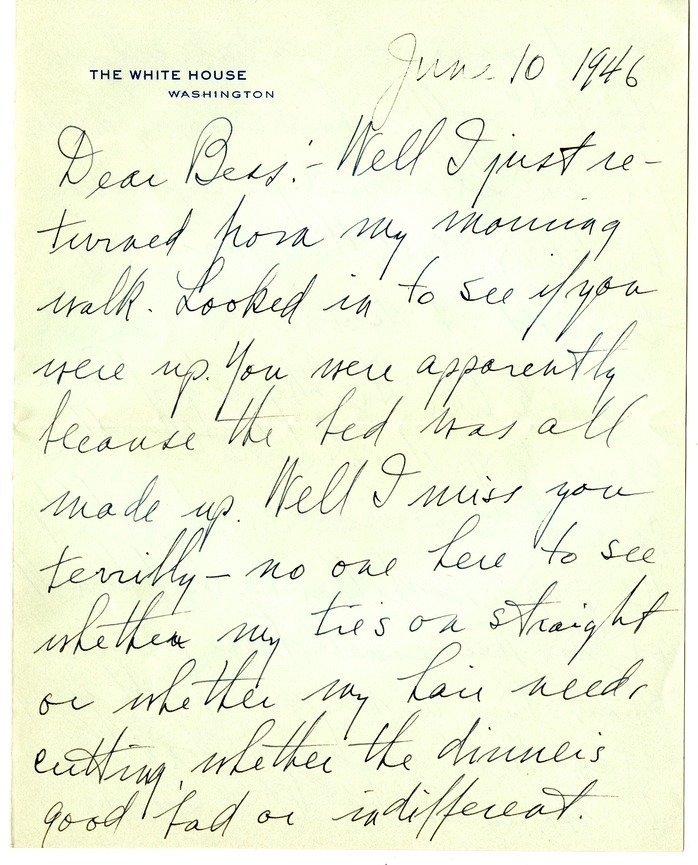 THE WHITE HOUSE
WASHINGTON
June 10 1946
Dear Bess:- Well I just re-
turned from my morning
walk. Looked in to see if you
were up. You were apparently
because the bed was all
made up. Well I miss you
terribly - no one here to see
whether my tie's on straight
or whether my hair needs
cutting, whether the dinner's
good bad or indifferent.